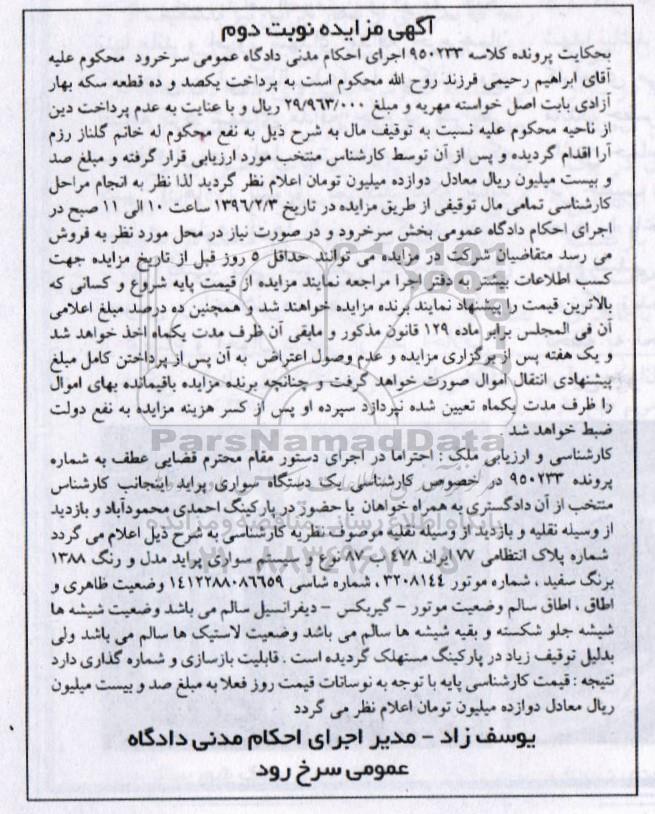 آگهی مزایده نوبت دوم
بحکایت پرونده کلاسه ۹۵۰۲۳۳ اجرای احکام مدنی دادگاه عمومی سرخرود محکوم علیه
آقای ابراهیم رحیمی فرزند روح الله محکوم است به پرداخت یکصد و ده قطعه سکه بهار
آزادی بابت اصل خواسته مهریه و مبلغ ۲۹/۹۶۳/۰۰۰ ریال و با عنایت به عدم پرداخت دین
از ناحیه محکوم علیه نسبت به توقیف مال به شرح ذیل به نفع محکوم له خانم گلناز رزم
آرا اقدام گردیده و پس از آن توسط کارشناس منتخب مورد ارزیابی قرار گرفته و مبلغ صد
و بیست میلیون ریال معادل دوازده میلیون تومان اعلام نظر گردید لذا نظر به انجام مراحل
کارشناسی تمامی مال توقیفی از طریق مزایده در تاریخ ۱۳۹۶/۲/۳ ساعت ۱۰ الی ۱۱ صبح در
اجرای احکام دادگاه عمومی بخش سرخرود و در صورت نیاز در محل مورد نظر به فروش
می رسد متقاضیان شرکت در مزایده می توانند حداقل ۵ روز قبل از تاریخ مزایده جهت
کسب اطلاعات بیشتر به دفتر اجرا مراجعه نمایند مزایده از قیمت پایه شروع و کسانی که
بالاترین قیمت را پیشنهاد نمایند برنده مزایده خواهند شد و همچنین ده درصد مبلغ اعلامی
آن فی المجلس برابر ماده ۱۲۹ قانون مذکور و مابقی آن ظرف مدت یکماه اخذ خواهد شد
و یک هفته پس از برگزاری مزایده و عدم وصول اعتراض به آن پس از پرداختن کامل مبلغ
پیشنهادی انتقال اموال صورت خواهد گرفت و چنانچه برنده مزایده باقیمانده بهای اموال
را ظرف مدت یکماه تعیین شده نپردازد سپرده او پس از کسر هزینه مزایده به نفع دولت
ضبط خواهد شد
ParsNamadData
کارشناسی و ارزیابی ملک : احتراما در اجرای دستور مقام محترم قضایی عطف به شماره
پرونده ۹۵۰۲۳۳ در خصوص کارشناسی یک دستگاه سواری پراید اینجانب کارشناس
منتخب از آن دادگستری به همراه خواهان با حضور در پارکینگ احمدی محمودآباد و بازدید
پایگاه اطلاع رسانی مناقصه و مزایده
از وسیله نقلیه و بازدید از وسیله نقلیه موصوف نظریه کارشناسی به شرح ذیل اعلام می گردد
شماره پلاک انتظامی ۷۷ ایران ۴۷۸ ب ۸۷ نوع و سیستم سواری پراید مدل و رنگ ۱۳۸۸
برنگ سفید ، شماره موتور ۳۲۰۸۱۴۴ ، شماره شاسی ۱۴۱۲۲۸۸۰۸۶۶۵۹ وضعیت ظاهری و
اطاق ، اطاق سالم وضعیت موتور – گیربکس – دیفرانسیل سالم می باشد وضعیت شیشه ها
شیشه جلو شکسته و بقیه شیشه ها سالم می باشد وضعیت لاستیک ها سالم می باشد ولی
بدلیل توقیف زیاد در پارکینگ مستهلک گردیده است . قابلیت بازسازی و شماره گذاری دارد
نتیجه : قیمت کارشناسی پایه با توجه به نوسانات قیمت روز فعلا به مبلغ صد و بیست میلیون
ریال معادل دوازده میلیون تومان اعلام نظر می گردد
یوسف زاد – مدیر اجرای احکام مدنی دادگاه
عمومی سرخ رود